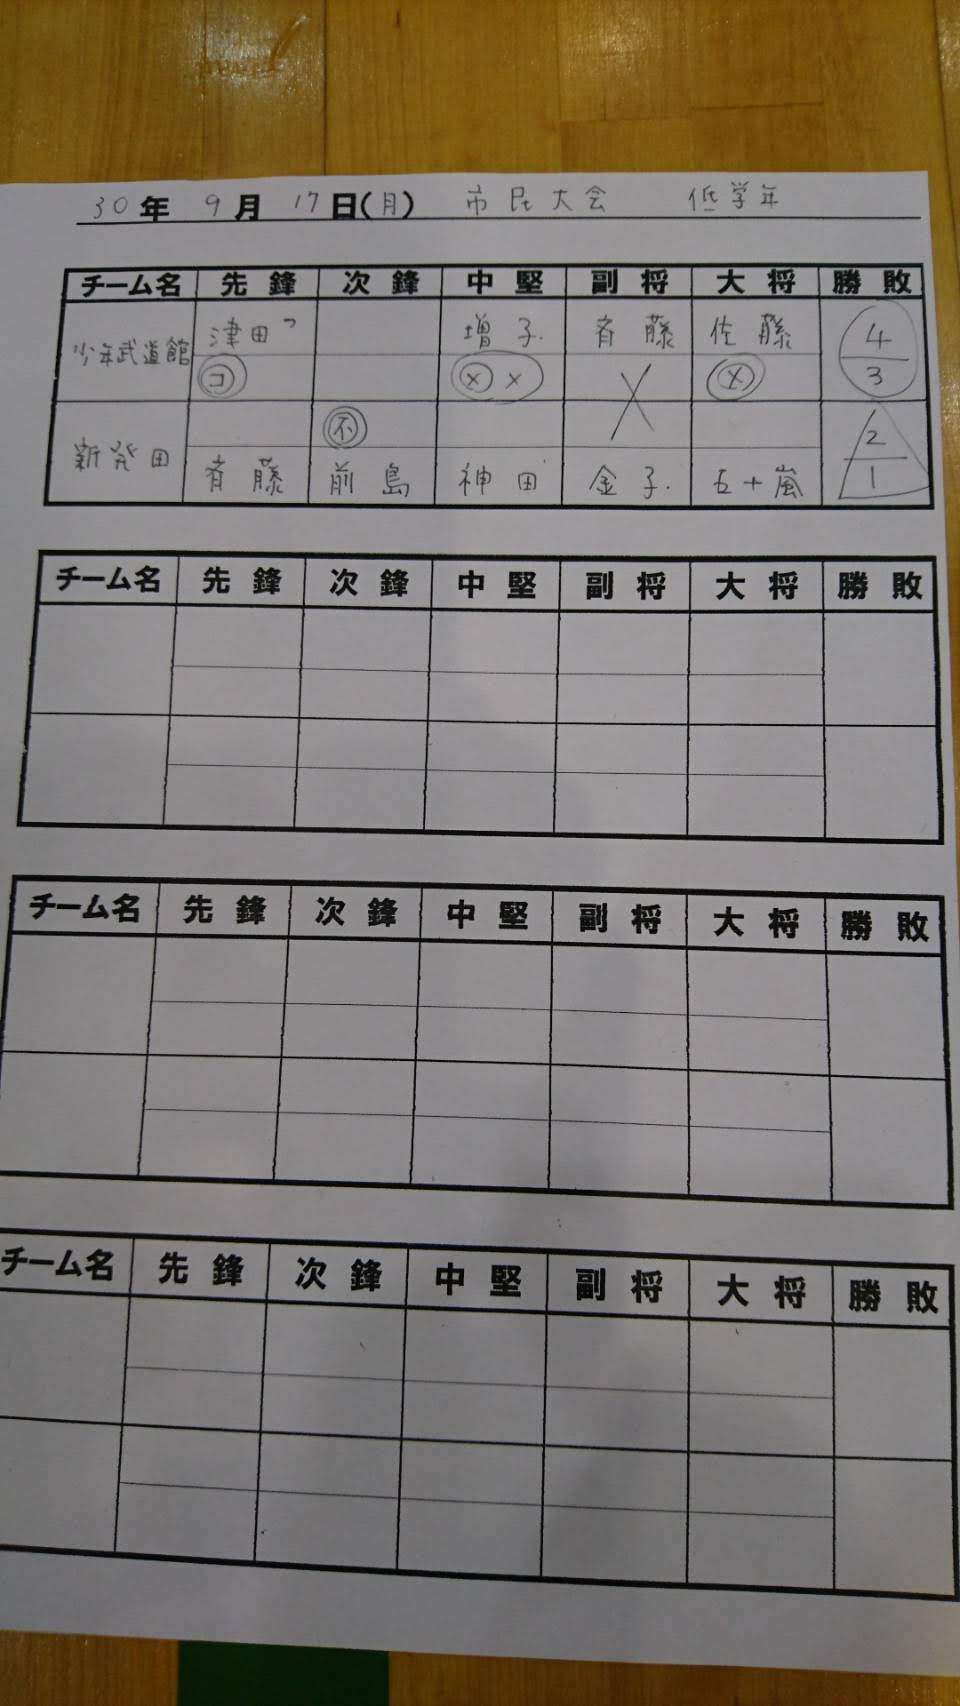 30年 9月 17日(月) 市民大会 低学年
チーム名 先鋒 次鋒 中堅 副将 大将 勝敗
少年武道館 津田 増子 斉藤 佐藤 4
コ メ メ メ 3
新発田 不 2
斉藤 前島 神田 金子 五十嵐 1
チーム名 先鋒 次鋒 中堅 副将 大将 勝敗
チーム名 先鋒 次鋒 中堅 副将 大将 勝敗
チーム名 先鋒 次鋒 中堅 副将 大将 勝敗